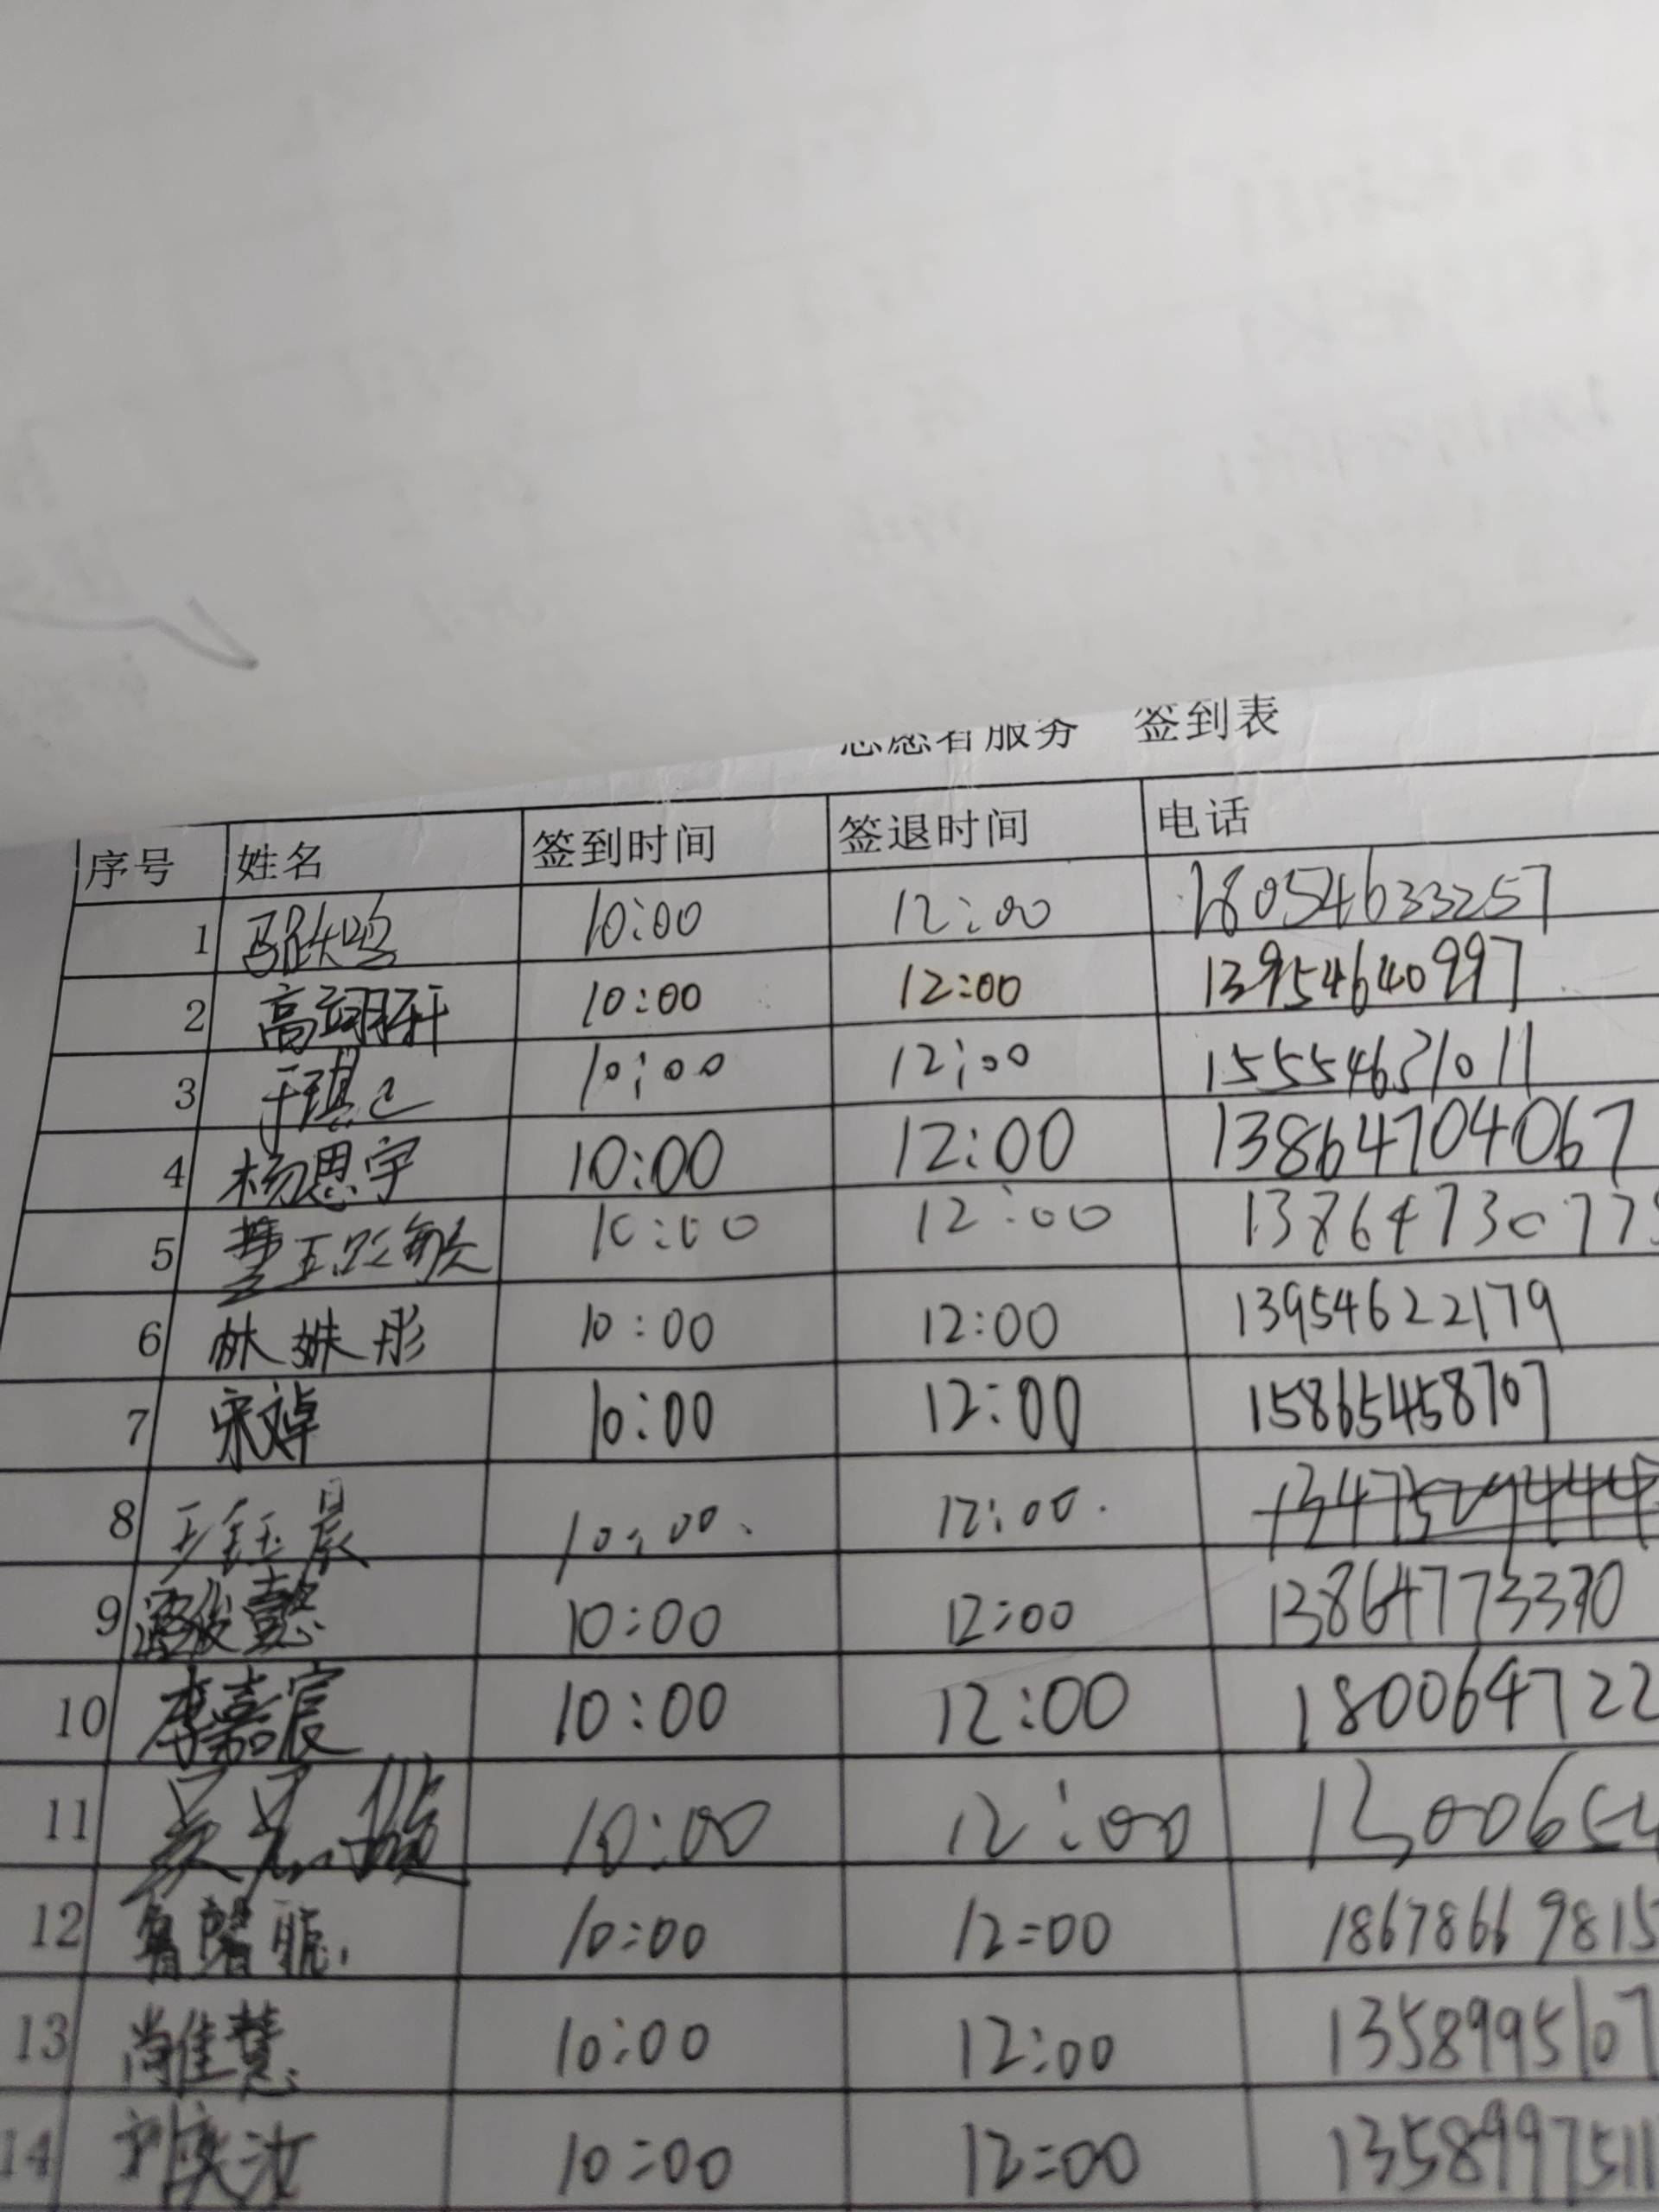 志愿者服务 签到表
序号 姓名 签到时间 签退时间 电话
1 10:00 12:00 18054633257
2 高翊轩 10:00 12:00 13954640997
3 于琪 10:00 12:00 15554631011
4 杨思宇 10:00 12:00 13864704067
5 10:00 12:00 1386473077
6 林姝彤 10:00 12:00 13954622179
7 宋文焯 10:00 12:00 15865458707
8 王钰晨 10:00 12:00
9 10:00 12:00 13864773370
10 李嘉宸 10:00 12:00 180064722
11 10:00 12:00 1300654
12 10:00 12:00 18678669815
13 尚佳慧 10:00 12:00 1358995107
14 刘奕汝 10:00 12:00 1358997511